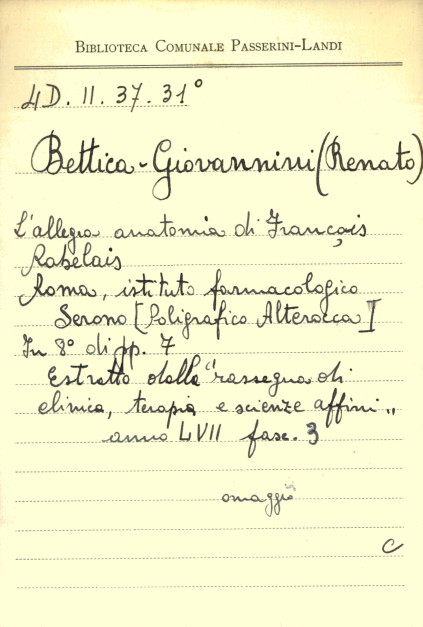 BIBLIOTECA COMUNALE PASSERINI-LANDI
4D. II. 37. 31°
Bettica-Giovannini (Renato)
L'allegra anatomia di François
Rabelais
Roma, istituto farmacologico
Serono [Poligrafico Alterocca]
In 8° di pp. 7
Estratto dalla "rassegna di
clinica, terapia e scienze affini"
anno LVII fasc. 3
omaggio
C